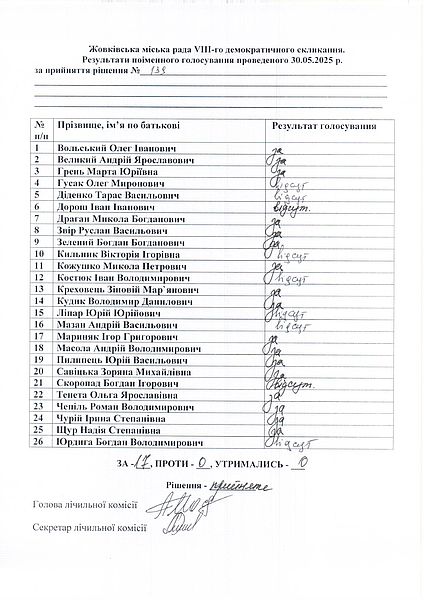 Жовківська міська рада VIII-го демократичного скликання.
Результати поіменного голосування проведеного 30.05.2025 р.
за прийняття рішення № 139
№ п/п Прізвище, ім’я по батькові Результат голосування
1 Вольський Олег Іванович за
2 Великий Андрій Ярославович за
3 Грень Марта Юріївна за
4 Гусак Олег Миронович відсут
5 Діденко Тарас Васильович відсут
6 Дорош Іван Іванович відсут.
7 Драган Микола Богданович за
8 Звір Руслан Васильович за
9 Зелений Богдан Богданович за
10 Кильник Вікторія Ігорівна відсут
11 Кожушко Микола Петрович за
12 Костюк Іван Володимирович відсут
13 Креховець Зіновій Мар`янович за
14 Кудик Володимир Данилович за
15 Ліпар Юрій Юрійович відсут
16 Мазан Андрій Васильович відсут
17 Мариняк Ігор Григорович за
18 Масола Андрій Володимирович за
19 Пилипець Юрій Васильович за
20 Савіцька Зоряна Михайлівна за
21 Скоропад Богдан Ігорович відсут.
22 Тенета Ольга Ярославівна за
23 Чепіль Роман Володимирович за
24 Чурій Ірина Степанівна за
25 Щур Надія Степанівна за
26 Юрдига Богдан Володимирович відсут
ЗА - 17, ПРОТИ - 0, УТРИМАЛИСЬ - 0
Рішення - прийнято
Голова лічильної комісії
Секретар лічильної комісії